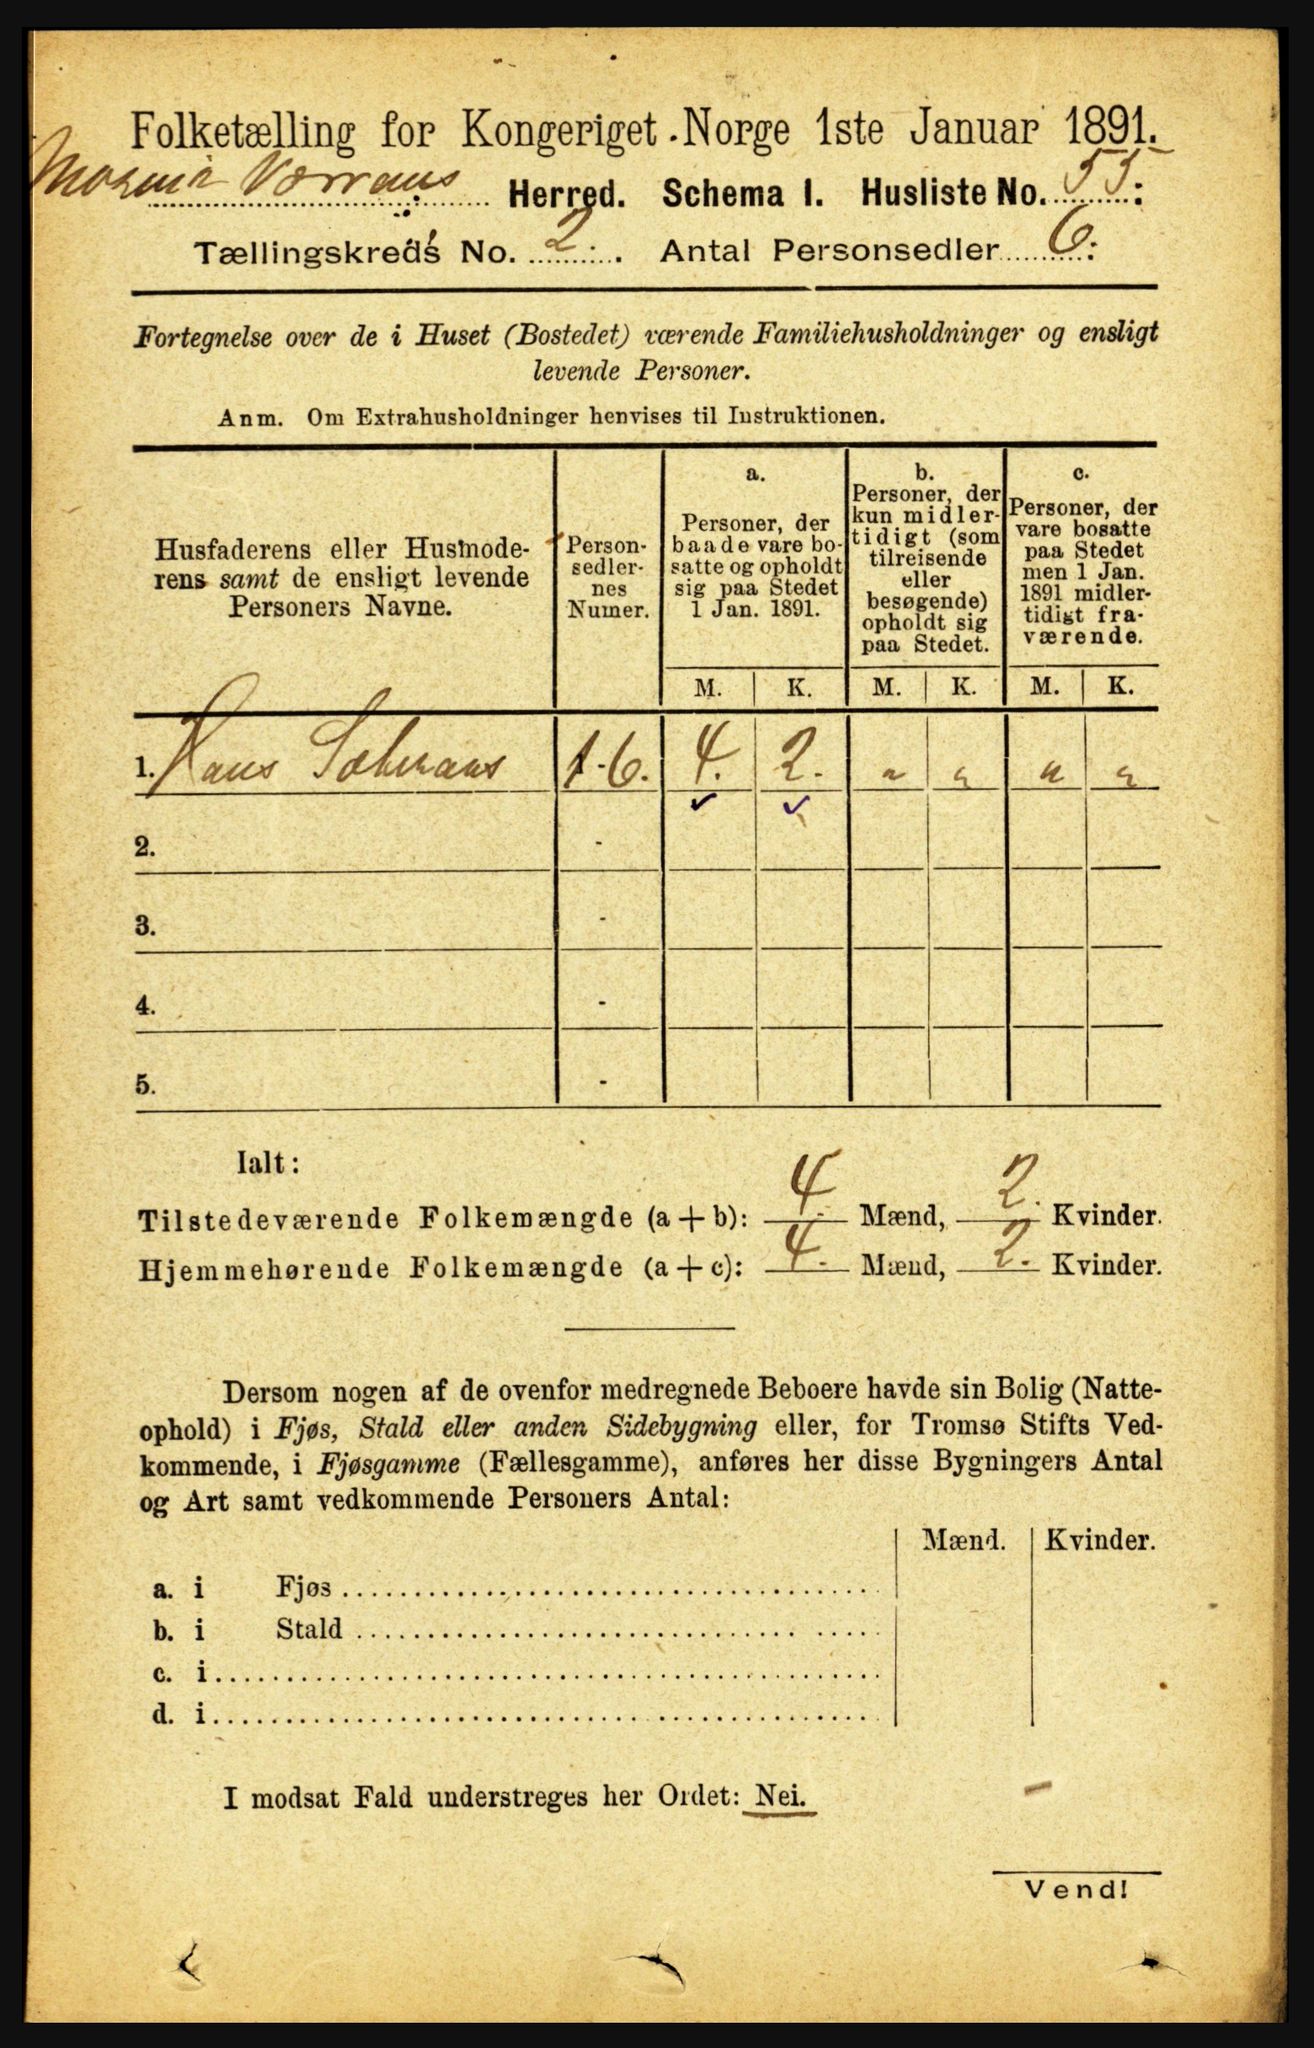 Folketælling for Kongeriget Norge 1ste Januar 1891.
Mosvik Værrans Herred. Schema 1. Husliste No. 55:
Tællingskreds No. 2. Antal Personsedler 6.
Fortegnelse over de i Huset (Bostedet) værende Familiehusholdninger og ensligt
levende Personer.
Anm. Om Extrahusholdninger henvises til Instruktionen.
Husfaderens eller Husmode-
rens samt de ensligt levende
Personers Navne.
Person-
sedler-
nes
Numer.
a.
Personer, der
baade vare bo-
satte og opholdt
sig paa Stedet
1 Jan. 1891.
b.
Personer, der
kun midler-
tidigt (som
tilreisende
eller
besøgende)
opholdt sig
paa Stedet.
c.
Personer, der
vare bosatte
paa Stedet
men 1 Jan.
1891 midler-
tidigt fra-
værende.
M. K. M. K. M. K.
1. Hans 1-6. 4. 2. " " " "
2. -
3. -
4. -
5. -
Ialt:
Tilstedeværende Folkemængde (a + b): 4. Mænd, 2. Kvinder.
Hjemmehørende Folkemængde (a + c): 4. Mænd, 2. Kvinder.
Dersom nogen af de ovenfor medregnede Beboere havde sin Bolig (Natte-
ophold) i Fjøs, Stald eller anden Sidebygning eller, for Tromsø Stifts Ved-
kommende, i Fjøsgamme (Fællesgamme), anføres her disse Bygningers Antal
og Art samt vedkommende Personers Antal:
Mænd. Kvinder.
a. i Fjøs
b. i Stald
c. i
d. i
I modsat Fald understreges her Ordet: Nei.
Vend!